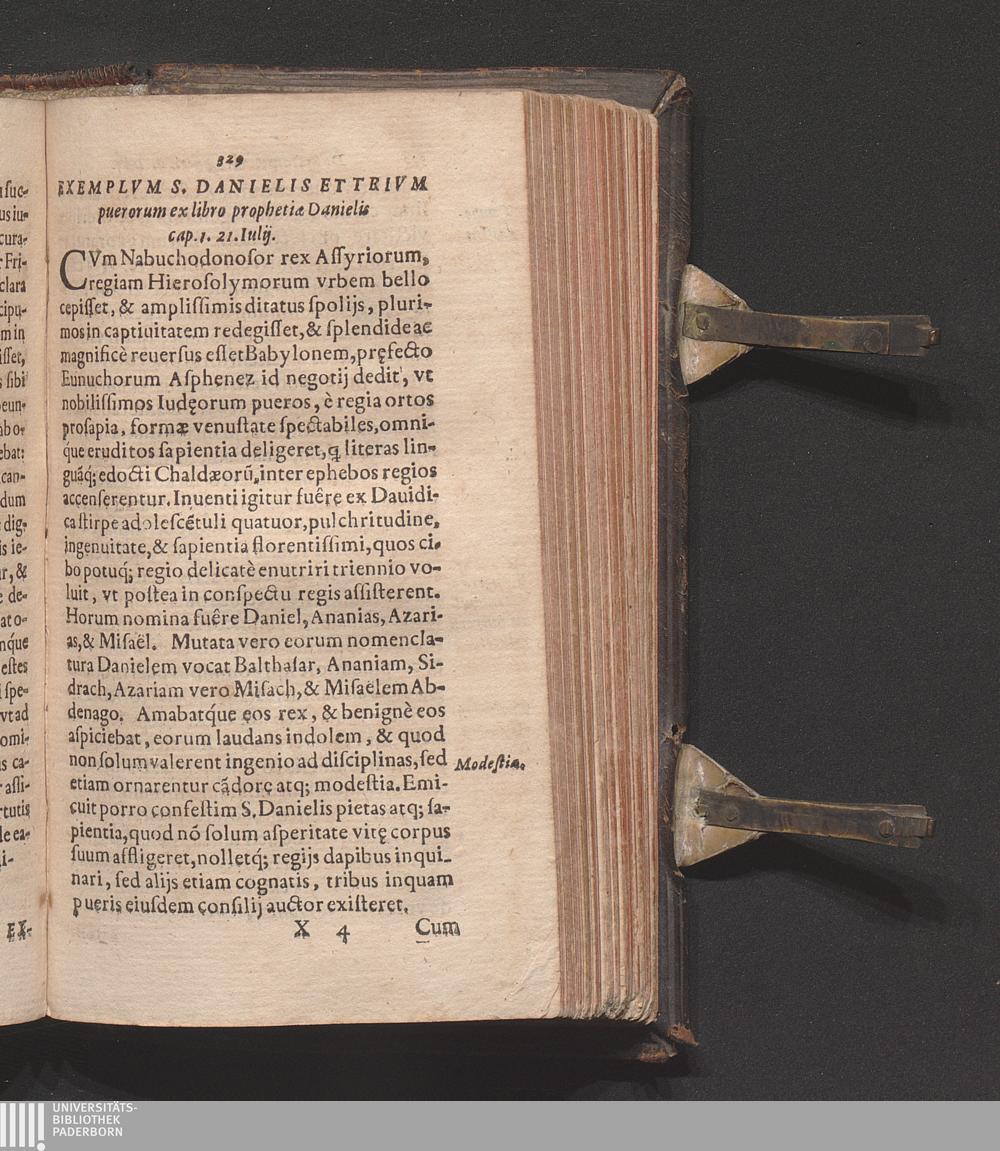 329
EXEMPLVM S. DANIELIS ET TRIVM
puerorum ex libro prophetiæ Danielis
cap. 1. 21. Iulij.
CVm Nabuchodonoſor rex Aſſyriorum,
regiam Hieroſolymorum vrbem bello
cepiſſet, & ampliſſimis ditatus ſpolijs, pluri-
mos in captiuitatem redegiſſet, & ſplendide ac
magnificè reuerſus eſſet Babylonem, pręfecto
Eunuchorum Aſphenez id negotij dedit, vt
nobiliſſimos Iudęorum pueros, è regia ortos
proſapia, formæ venuſtate ſpectabiles, omni-
q́ue eruditos ſapientia deligeret, q literas lin-
guáq́; edocti Chaldæorũ, inter ephebos regios
accenſerentur. Inuenti igitur fuêre ex Dauidi-
ca ſtirpe adoleſcẽtuli quatuor, pulchritudine,
ingenuitate, & ſapientia florentiſſimi, quos ci-
bo potuq́; regio delicatè enutriri triennio vo-
luit, vt poſtea in conſpectu regis aſſiſterent.
Horum nomina fuêre Daniel, Ananias, Azari-
as, & Miſaël. Mutata vero eorum nomencla-
tura Danielem vocat Balthaſar, Ananiam, Si-
drach, Azariam vero Miſach, & Miſaëlem Ab-
denago. Amabatq́ue eos rex, & benignè eos
aſpiciebat, eorum laudans indolem, & quod
non ſolum valerent ingenio ad diſciplinas, ſed
Modeſtia.
etiam ornarentur cãdore atq; modeſtia. Emi-
cuit porro confeſtim S. Danielis pietas atq; ſa-
pientia, quod nó ſolum aſperitate vitę corpus
ſuum affligeret, nolletq́; regijs dapibus inqui-
nari, ſed alijs etiam cognatis, tribus inquam
pueris eiuſdem conſilij auctor exiſteret.
X 4 Cum
EX-
UNIVERSITÄTS-
BIBLIOTHEK
PADERBORN